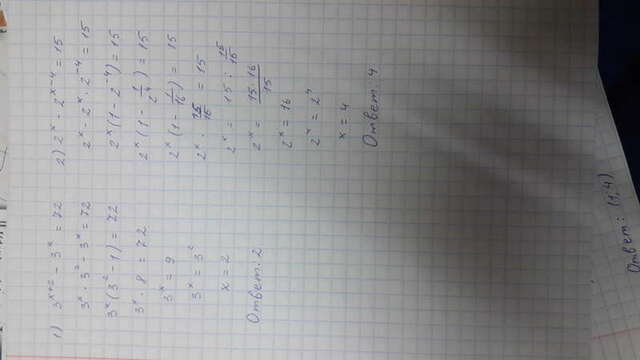 1) 3^{x+2} - 3^x = 72
3^x · 3^2 - 3^x = 72
3^x (3^2 - 1) = 72
3^x · 8 = 72
3^x = 9
3^x = 3^2
x = 2
Ответ: 2
2) 2^x - 2^{x-4} = 15
2^x - 2^x · 2^{-4} = 15
2^x (1 - 2^{-4}) = 15
2^x (1 - \frac{1}{2^4}) = 15
2^x (1 - \frac{1}{16}) = 15
2^x · \frac{15}{16} = 15
2^x = 15 : \frac{15}{16}
2^x = \frac{15 · 16}{15}
2^x = 16
2^x = 2^4
x = 4
Ответ. 4
Ответ: (1,4)